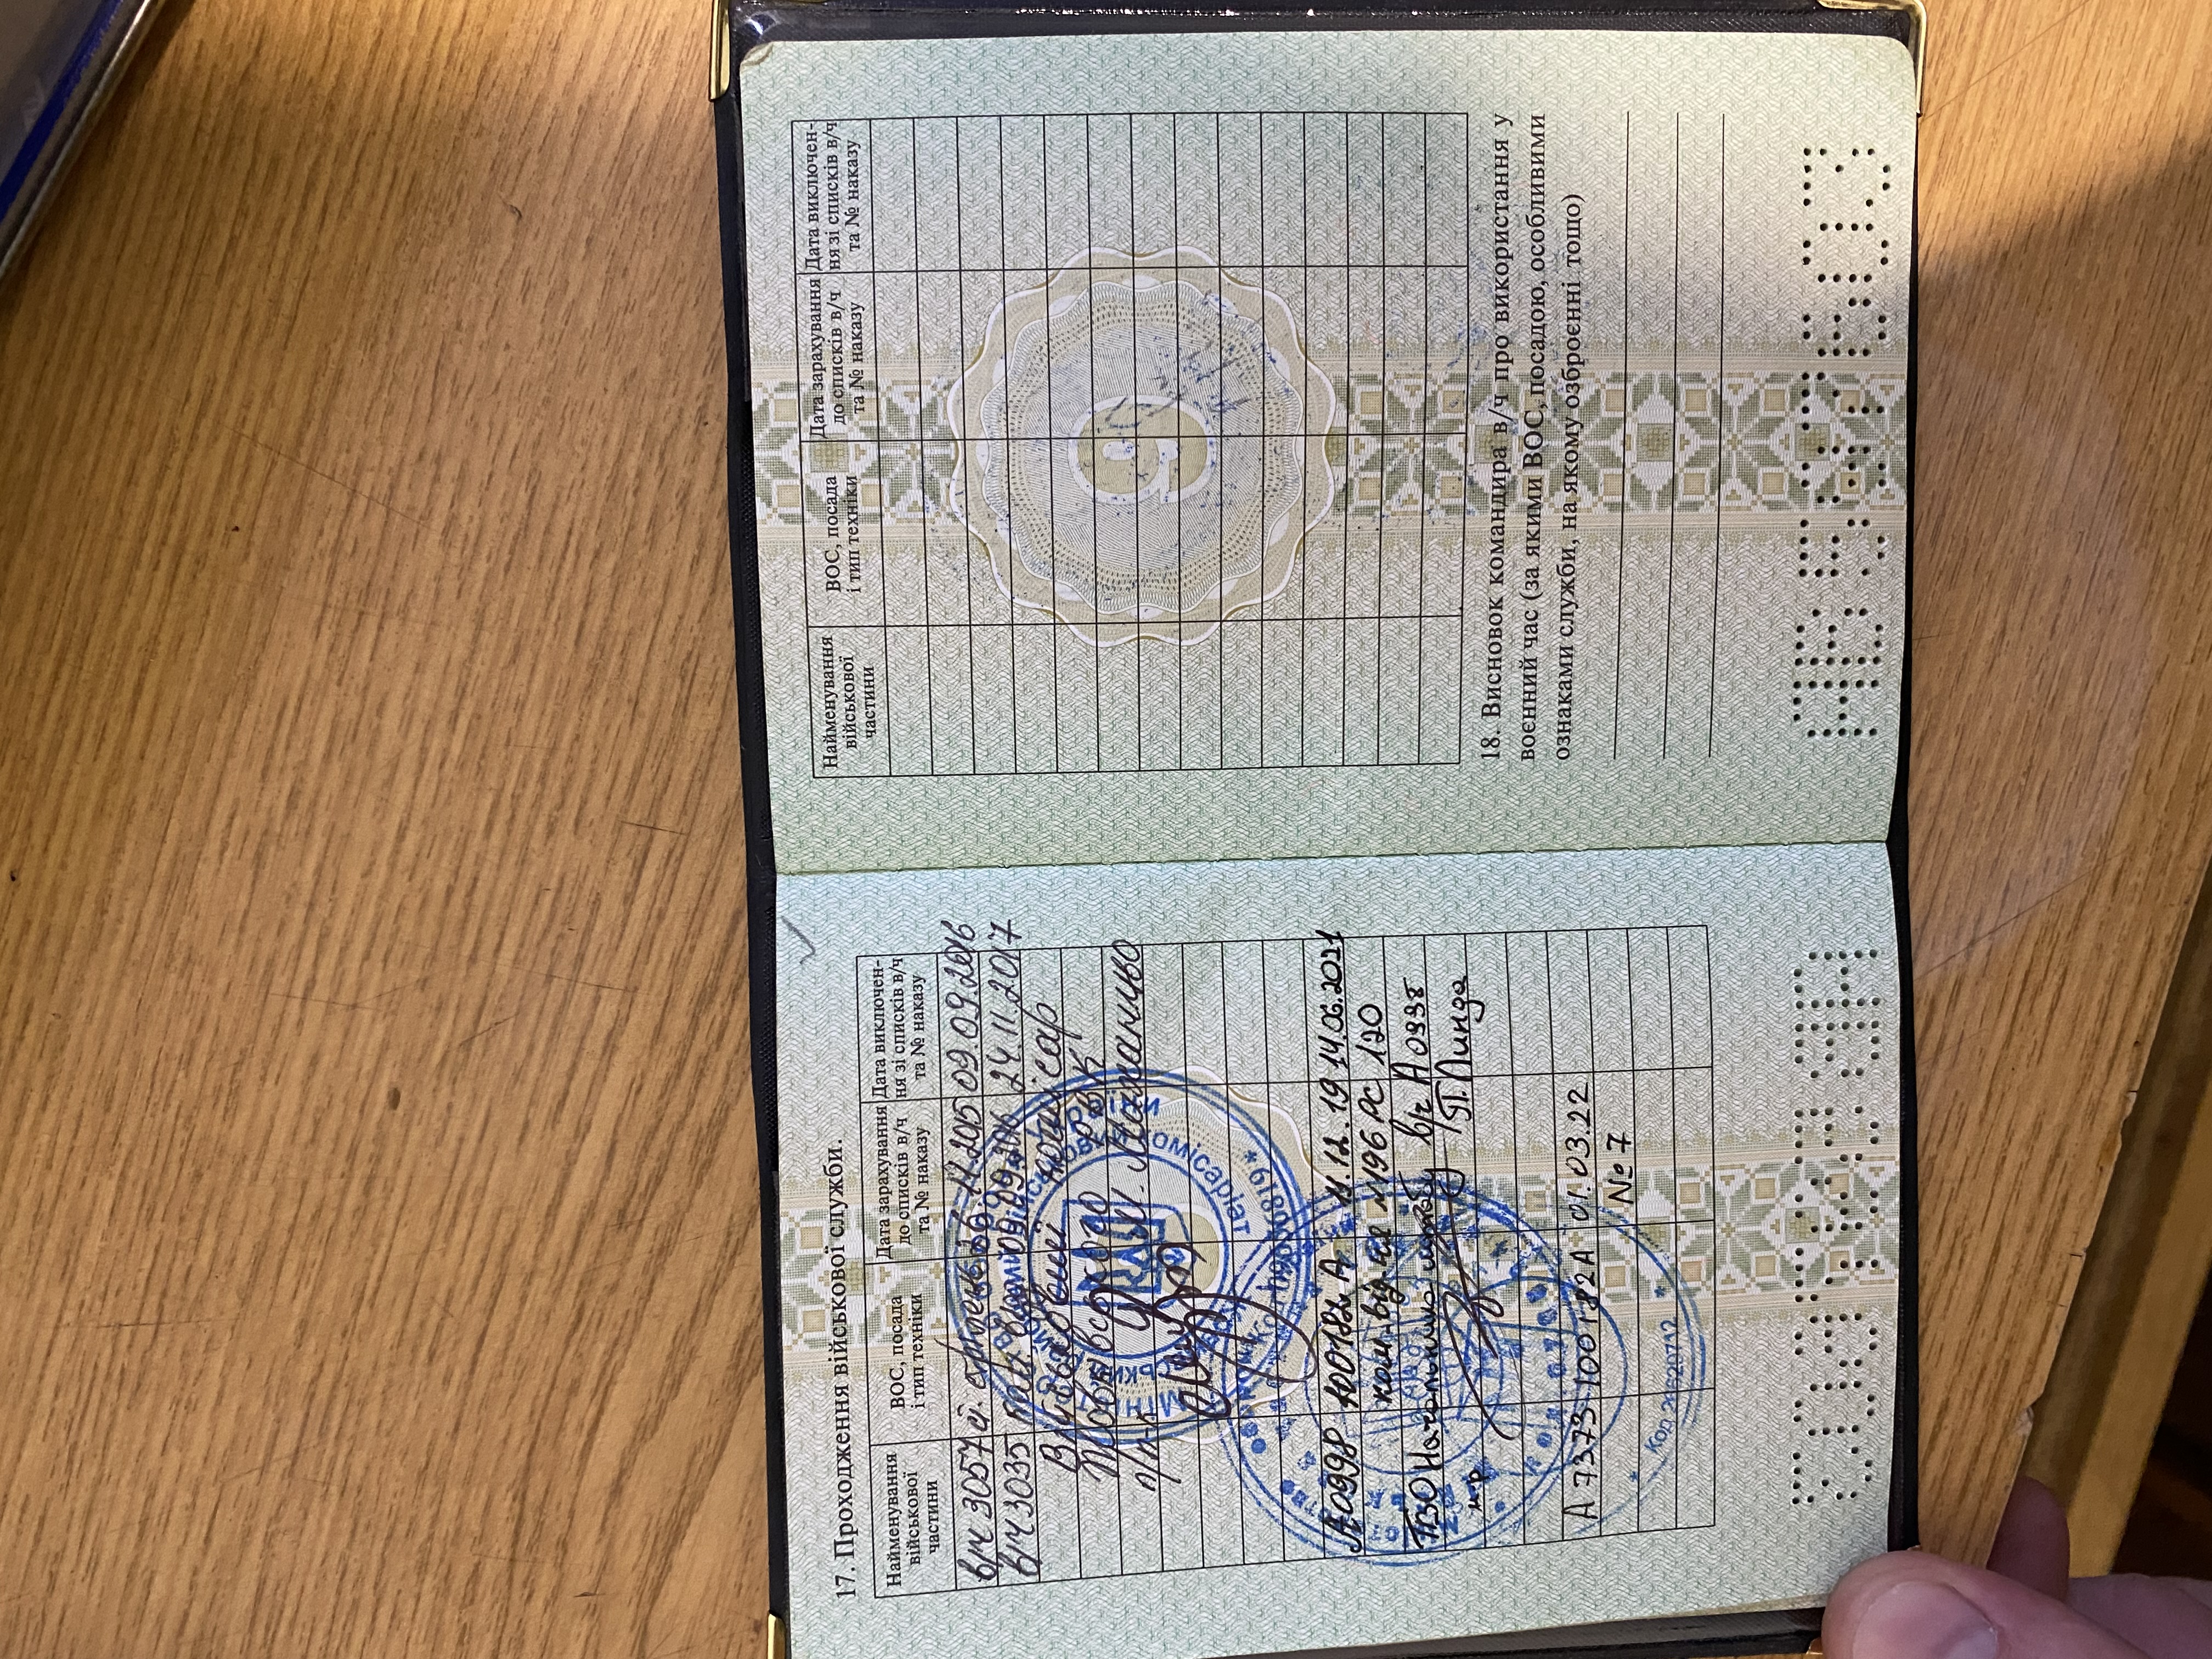 17. Проходження військової служби.
Найменування військової частини
ВОС, посада і тип техніки
Дата зарахування до списків в/ч та № наказу
Дата виключен-ня зі списків в/ч та № наказу
в/ч 3057 стрілець 26.11.2015 09.09.2016
в/ч 3035 09.09.2016 24.11.2017
Військовий комісар
РВК
п/п-к
А0998 100182 А 11.12.19 14.06.2021
ком. від-ня №196 РС 120
ТВО Начальника штабу в/ч А0998
м-р П. Линда
А 7373 100182А 01.03.22
№ 7
Код 09636819 *
* Код 26629712 *
АБ547603
Найменування військової частини
ВОС, посада і тип техніки
Дата зарахування до списків в/ч та № наказу
Дата виключен-ня зі списків в/ч та № наказу
9
18. Висновок командира в/ч про використання у
воєнний час (за якими ВОС, посадою, особливими
ознаками служби, на якому озброєнні тощо)
АБ547603